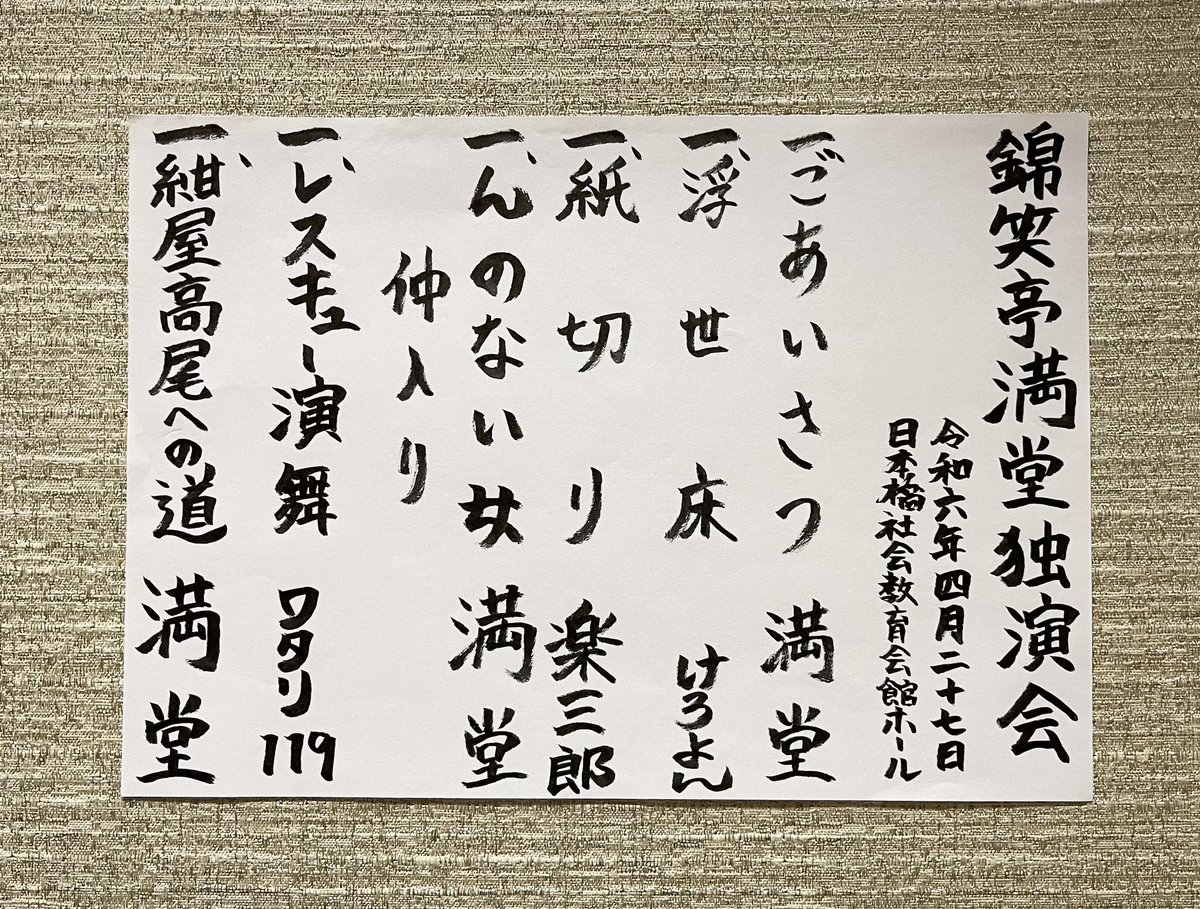 錦笑亭満堂独演会
令和六年四月二十七日
日本橋社会教育会館ホール
一、ごあいさつ 満堂
一、浮世床 けろよん
一、紙切り 楽三郎
一、んのない女 満堂
仲入り
一、レスキュー演舞 ワタリ119
一、紺屋高尾への道 満堂